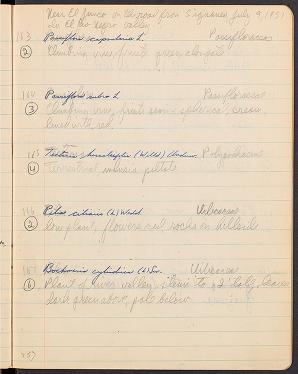 Near El Junco on the road from Siguanea, July 9, 1951
in El Rio Negro valley
163 Passiflora L. Passifloraceae
② Climbing vine, fruits green, elongate
164 Passiflora rubra L. Passifloraceae
③ Climbing vine, fruits semi-spherical, green
lined with red.
165 (Willd) Underw. Polypodiaceae
④ terrestrial
166 Pilea ciliaris (L) Wedd. Urticaceae
② low plant, flowers red, rocks on hillside
167 Boehmeria cylindrica (L) Sw. Urticaceae
⑥ Plant of river valley, stems to 2' tall, leaves
dark green above, pale below